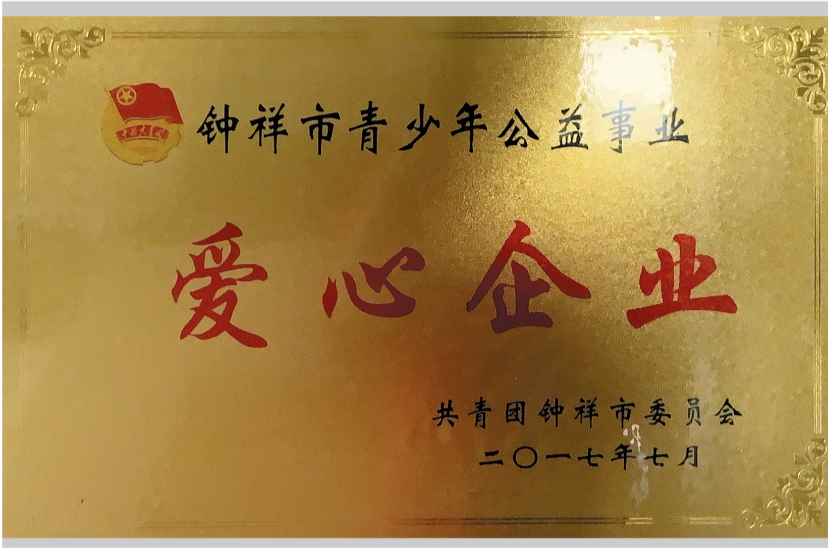 钟祥市青少年公益事业
爱心企业
共青团钟祥市委员会
二〇一七年七月